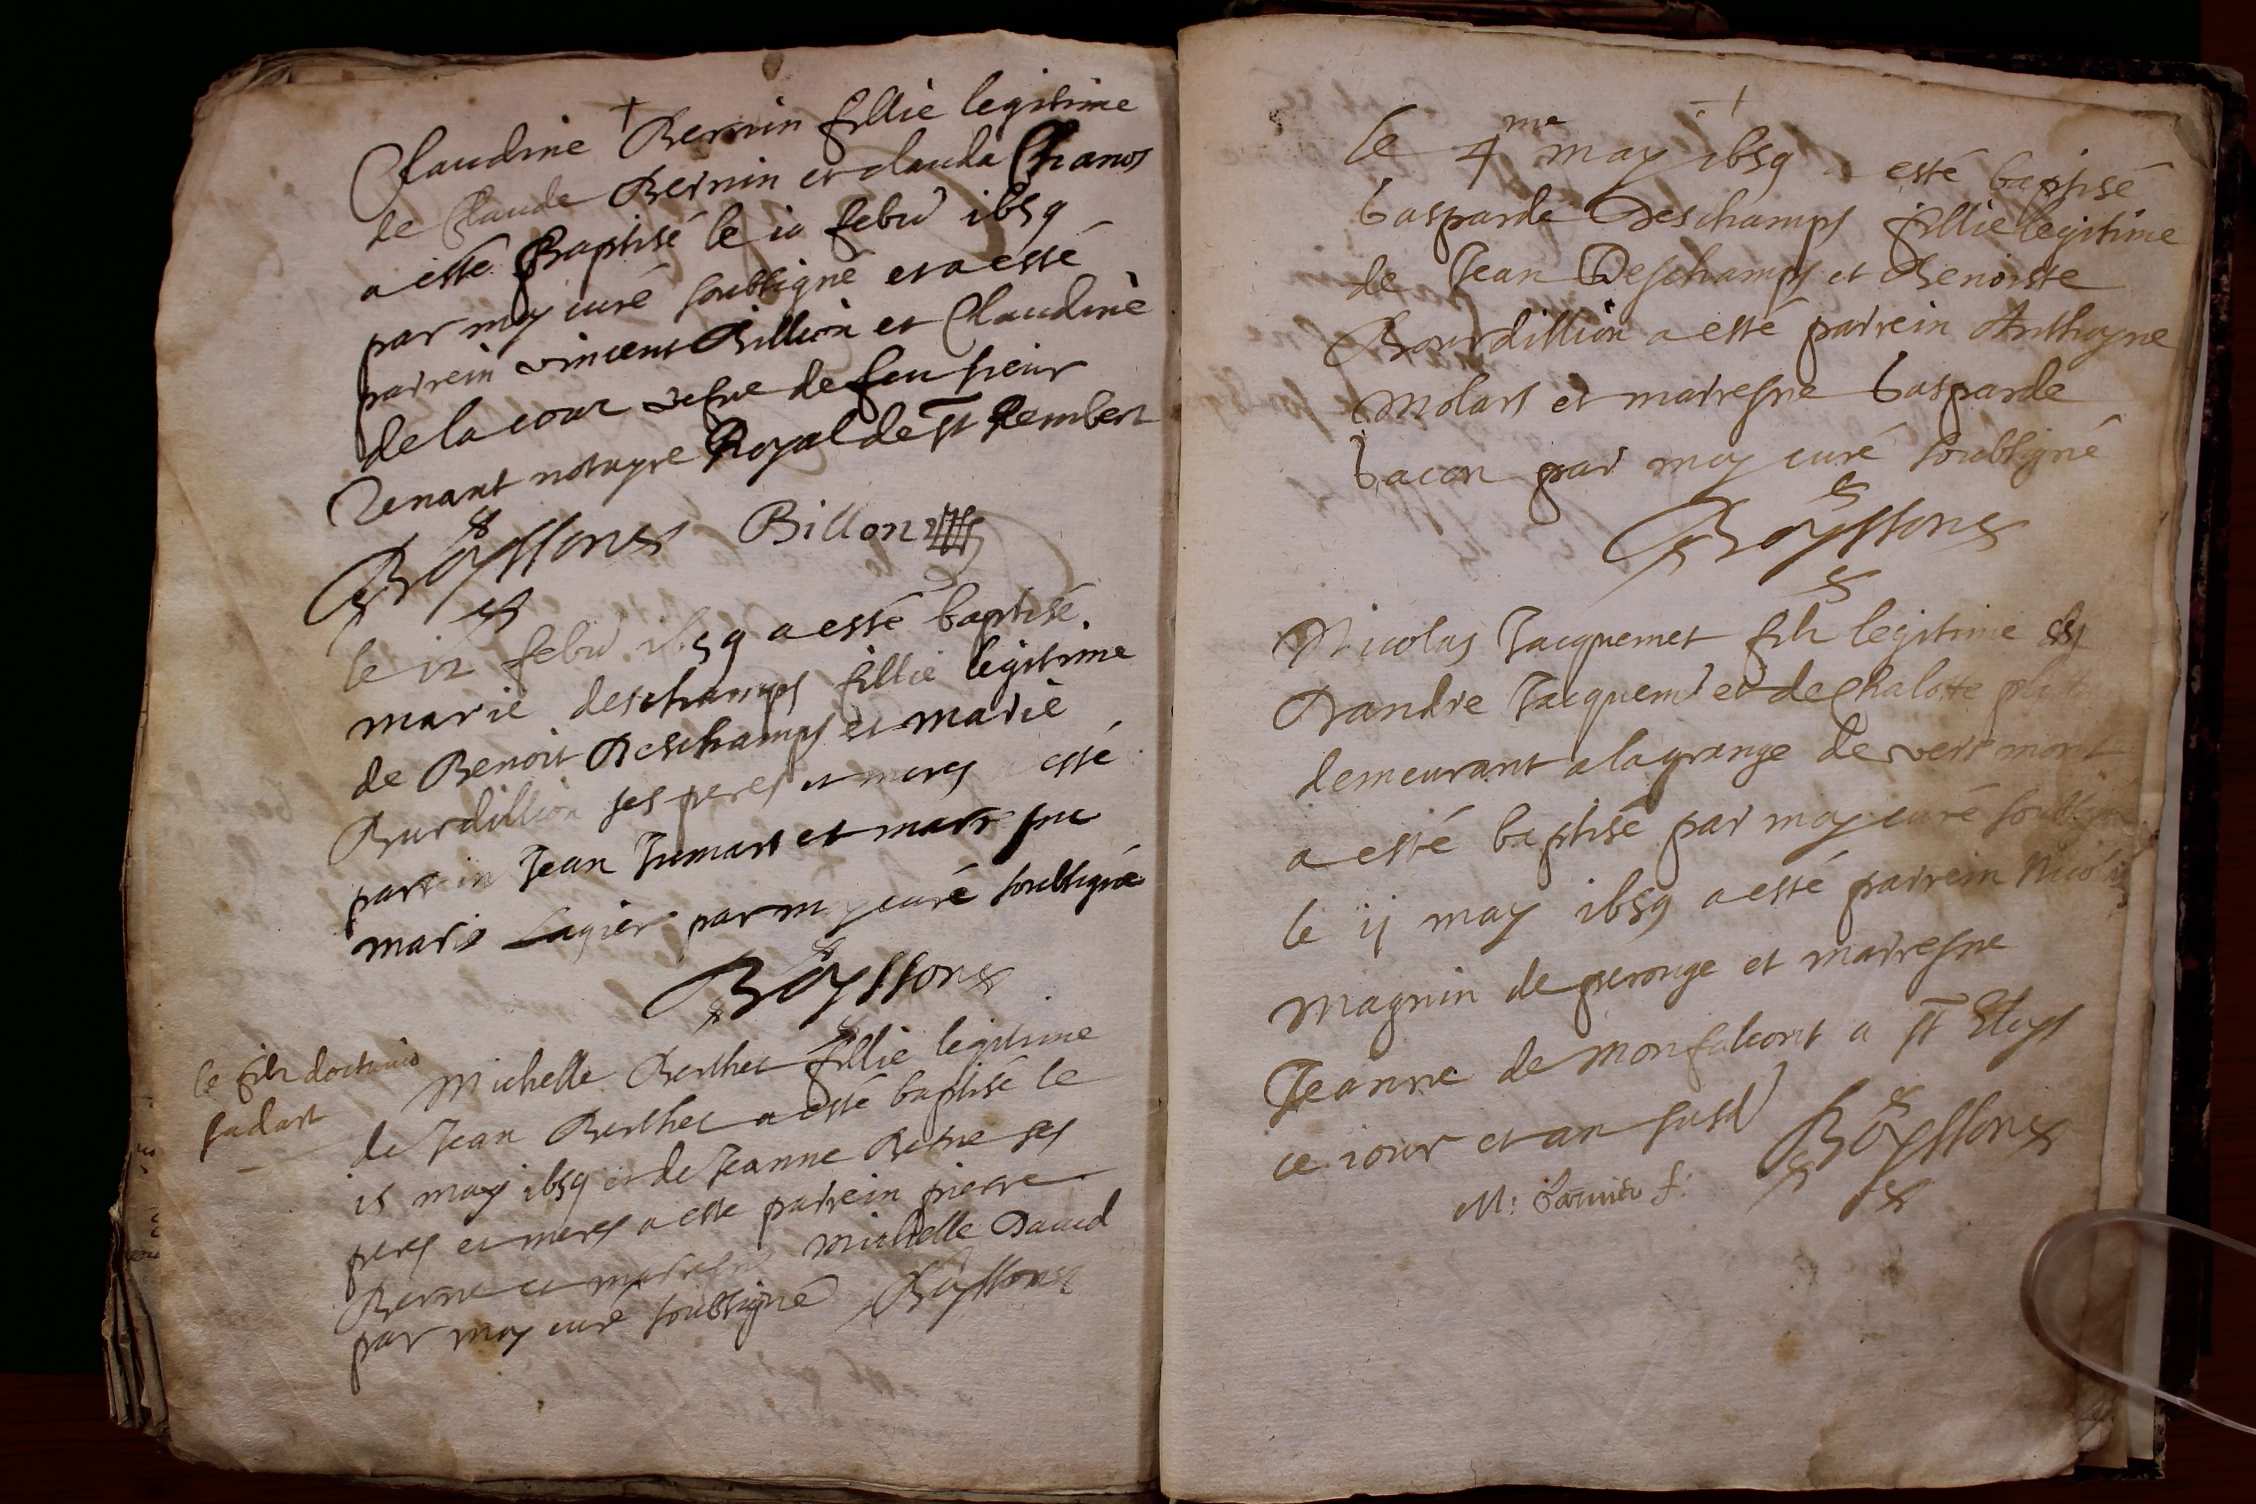 Claudine Bernin fillie legitime
de Claude Bernin et clauda Chanos
a esté Baptisé le 10 febv 1659
par moy curé soubsigné et a esté
parrein vincent Billion et Claudine
de la cour vefve de feu sieur
Tenant notayre Royal de st Rembert
Boyssons Billon
le 12 febv 1659 a esté baptisé
marie deschamps fillie legitime
de Benoit Deschamps et marie
Burdillion ses peres et meres esté
parrein Jean Jumart et marresne
marie Lagier par moy curé soubsigné
Boyssons
le filz
Michelle Berthet fillie legitime
de Jean Berthet a esté baptisé le
15 may 1659 et de Jeanne Berne ses
peres et meres a este parrein pierre
Berne et marresne michelle David
par moy curé soubsigné Boyssons
+
le 4me may 1659 a esté baptisé
Gasparde Deschamps fillie legitime
de Jean Deschamps et Benoiste
Bourdillion a esté parrein Anthoyne
Molars et marresne Gasparde
Gacon par moy curé soubsigné
Boyssons
Nicolas Jacquemet filz legitime
Dandre Jacquemet et de Chalotte
demeurant a la grange de vers mont
a esté baptisé par moy curé soubsigné
le 11 may 1659 a esté parrein Nicolas
Magnin de perouge et marresne
Jeanne de Monfalcont a st Eloys
ce iour et an susd
Boyssons